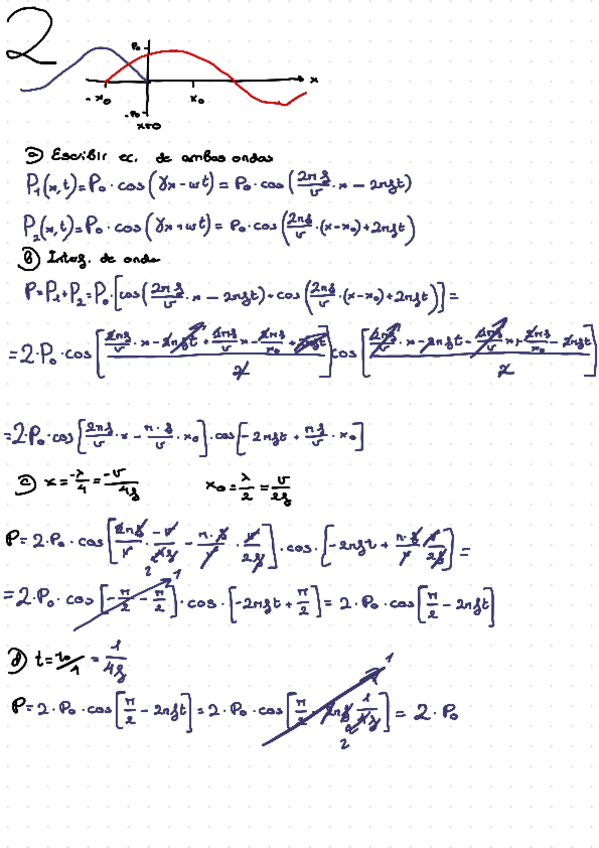 2
P₀
x
-x₀
x₀
-P₀
x=0
a) Escribir ec. de ambas ondas
P₁(x,t)=P₀·cos(γx-ωt)=P₀·cos(2πf/v·x-2πft)
P₂(x,t)=P₀·cos(γx+ωt)=P₀·cos(2πf/v·(x-x₀)+2πft)
b) Integ. de onda
P=P₁+P₂=P₀·[cos(2πf/v·x-2πft)+cos(2πf/v·(x-x₀)+2πft)]=
=2·P₀·cos[(2πf/v·x-2πft+2πf/v x-2πf/x₀+2πft)/2]cos[(2πf/v·x-2πft-2πf/v x+2πf/x₀-2πft)/2]
=2·P₀·cos[2πf/v·x-π·f/v·x₀]·cos[-2πft+πf/v·x₀]
c) x=-λ/4=-v/4f x₀=λ/2=v/2f
P=2·P₀·cos[2πf/v·-v/4f-π·f/v·v/2f]·cos·[-2πft+π·f/v·v/2f]=
2
=2·P₀·cos[-π/2-π/2]·cos·[-2πft+π/2]=2·P₀·cos[π/2-2πft]
1
d) t=τ₀/1=1/4f
P=2·P₀·cos[π/2-2πft]=2·P₀·cos[π/2-2πf·1/4f]=2·P₀
1
2